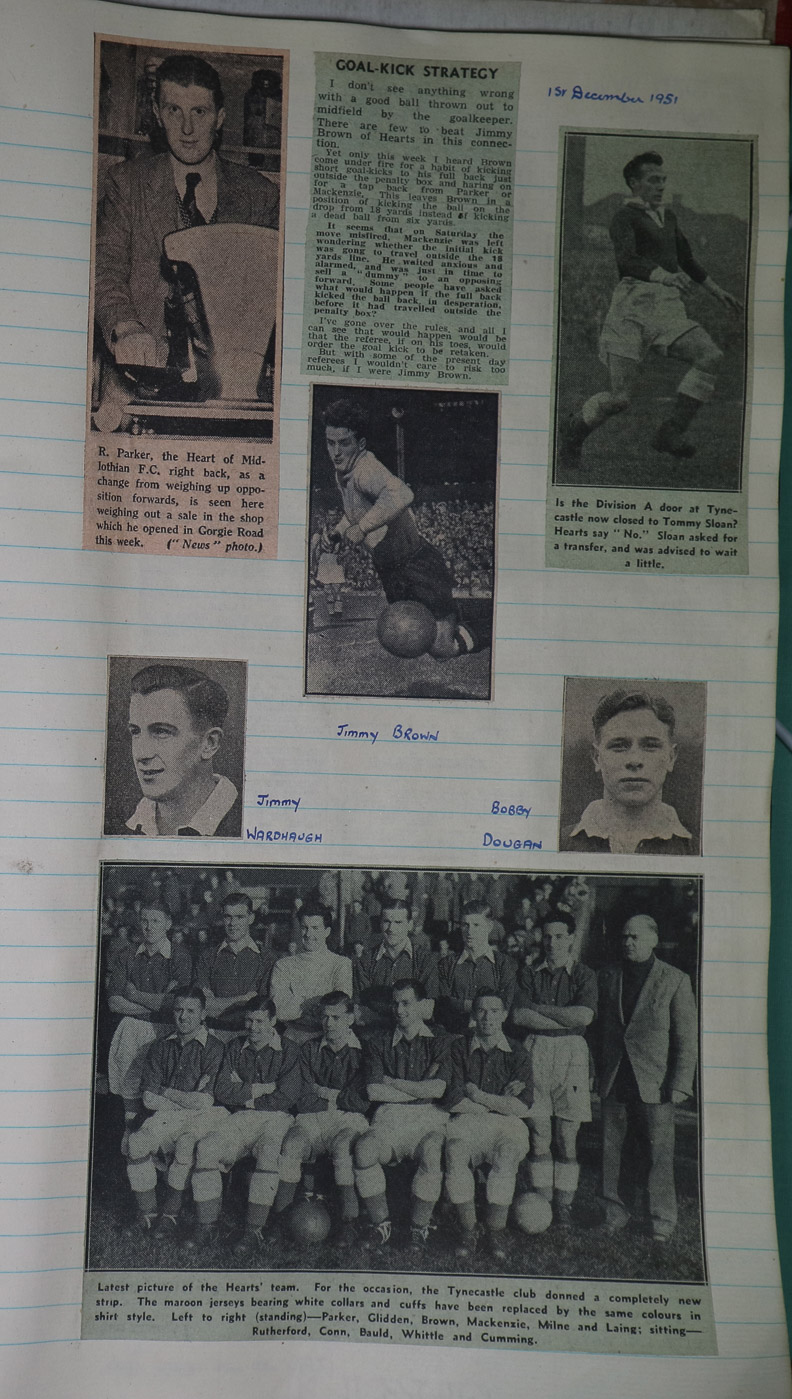 1st December 1951
R. Parker, the Heart of Mid-
lothian F.C. right back, as a
change from weighing up oppo-
sition forwards, is seen here
weighing out a sale in the shop
which he opened in Gorgie Road
this week. ("News" photo.)
GOAL-KICK STRATEGY
I don't see anything wrong
with a good ball thrown out to
midfield by the goalkeeper.
There are few to beat Jimmy
Brown of Hearts in this connec-
tion.
Yet only this week I heard Brown
come under fire for a habit of kicking
short goal-kicks to his full back just
outside the penalty box and haring on
for a tap back from Parker or
Mackenzie. This leaves Brown in a
position of kicking the ball on the
drop from 18 yards instead of kicking
a dead ball from six yards.
It seems that on Saturday the
move misfired. Mackenzie was left
wondering whether the initial kick
was gong to travel outside the 18
yards line. He waited anxious and
alarmed, and was just in time to
sell a "dummy" to an opposing
forward. Some people have asked
what would happen if the full back
kicked the ball back, in desperation,
before it had travelled outside the
penalty box?
I've gone over the rules, and all I
can see that would happen would be
that the referee, if on his toes, would
order the goal kick to be retaken.
But with some of the present day
referees I wouldn't care to risk too
much, if I were Jimmy Brown.
Is the Division A door at Tyne-
castle now closed to Tommy Sloan?
Hearts say "No." Sloan asked for
a transfer, and was advised to wait
a little.
Jimmy BROWN
Jimmy
WARDHAUGH
BOBBY
DOUGAN
Latest picture of the Hearts' team. For the occasion, the Tynecastle club donned a completely new
strip. The maroon jerseys bearing white collars and cuffs have been replaced by the same colours in
shirt style. Left to right (standing)—Parker, Glidden, Brown, Mackenzie, Milne and Laing; sitting—
Rutherford, Conn, Bauld, Whittle and Cumming.